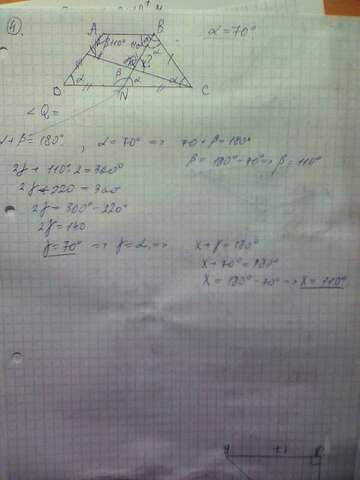 4)
A B
β=110°
α=70°
α β α α
D N C
∠Q=
α+β=180°, α=70° => 70+β=180°
β=180°-70° => β=110°
2γ+110°·2=360°
2γ+220=360
2γ=360°-220°
2γ=140
γ=70° => γ=α, =>
x+γ=180°
x+70°=180°
x=180°-70° => x=110°